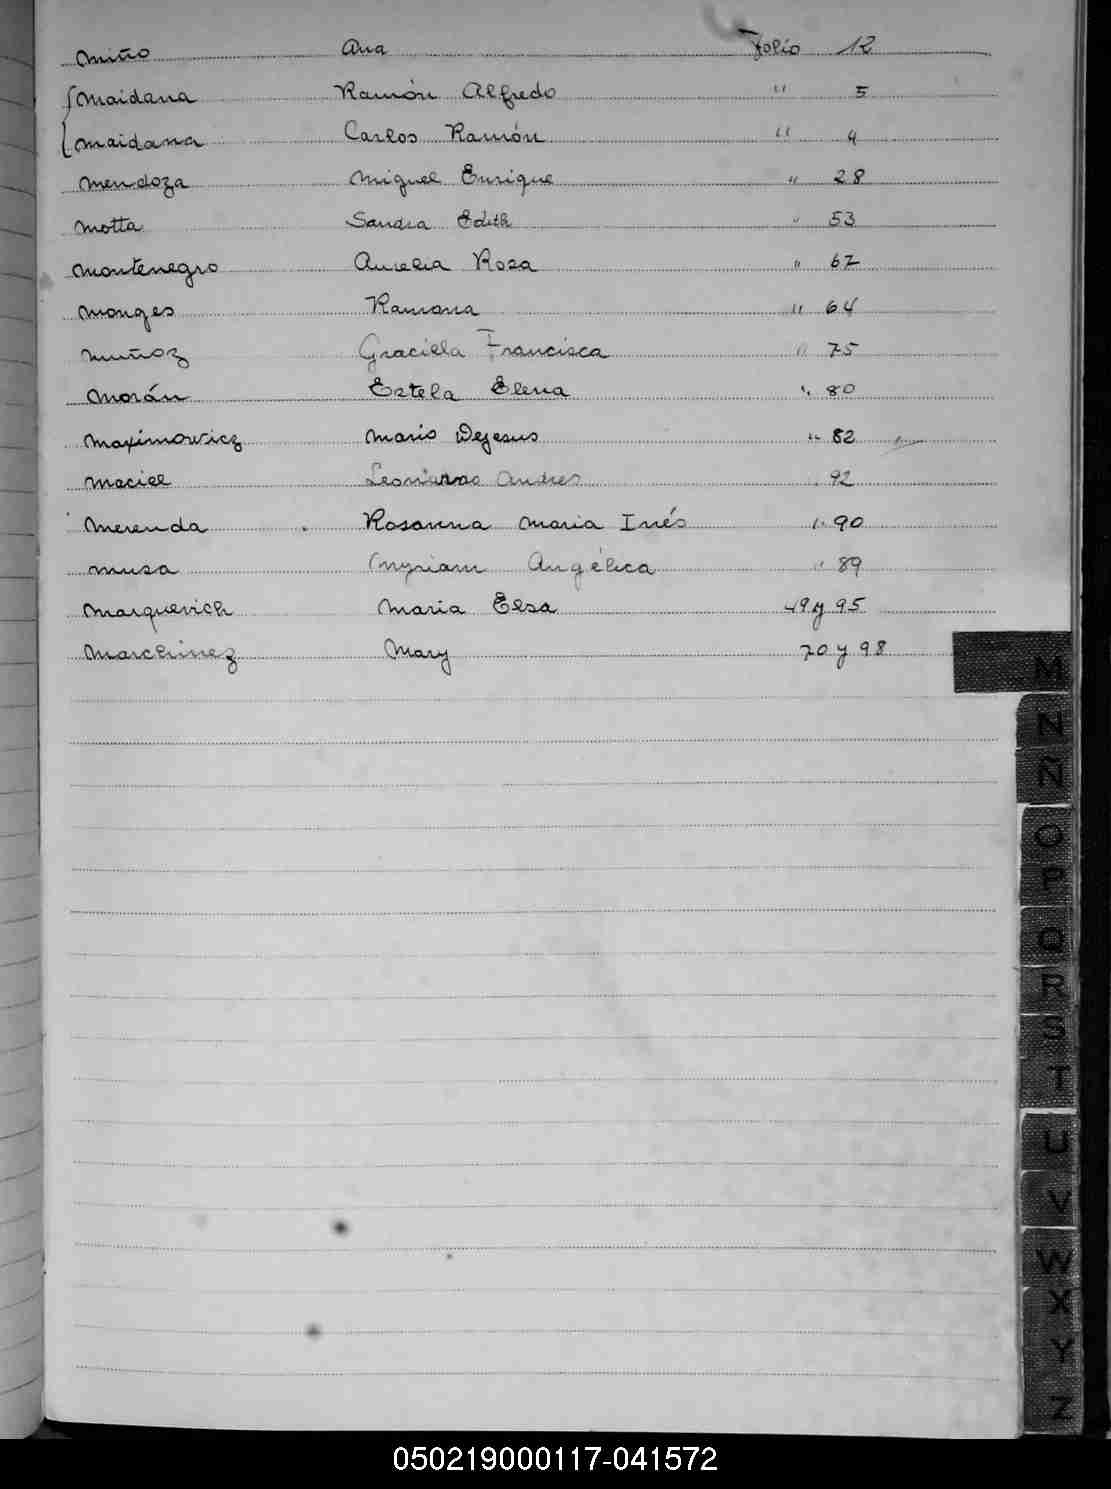 Miño Ana Folio 12
Maidana Ramón Alfredo " 5
Maidana Carlos Ramón " 4
Mendoza Miguel Enrique " 28
Motta Sandra Edith " 53
Montenegro Aurelia Rosa " 62
Monges Ramona " 64
Muñoz Graciela Francisca " 75
Morán Estela Elena " 80
Maximowicz Mario Dejesus " 82
Maciel Leonardo Andres 92
Merenda Rosanna Maria Inés " 90
Musa Myriam Angélica " 89
Marquevich Maria Elsa 49 y 95
Marchinez Mary 70 y 98
M
N
Ñ
O
P
Q
R
S
T
U
V
W
X
Y
Z
050219000117-041572